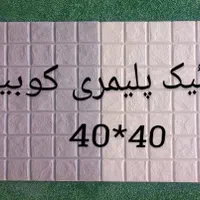 پلیمری کوبی
40*40